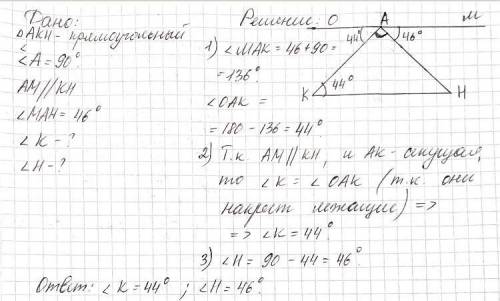 Дано:
△АКН - прямоугольный
∠
∠A = 90°
AM // KH
∠MAH = 46°
∠K - ?
∠H - ?
Решение:
1) ∠MAK = 46 + 90 =
= 136°
∠OAK =
= 180 - 136 = 44°
2) Т.к. AM // KH, и AK - секущая,
то ∠K = ∠OAK (т.к. они
накрест лежащие) =>
=> ∠K = 44°.
3) ∠H = 90 - 44 = 46°.
Ответ: ∠K = 44° ; ∠H = 46°.
O A M
44° 46°
K 44° H